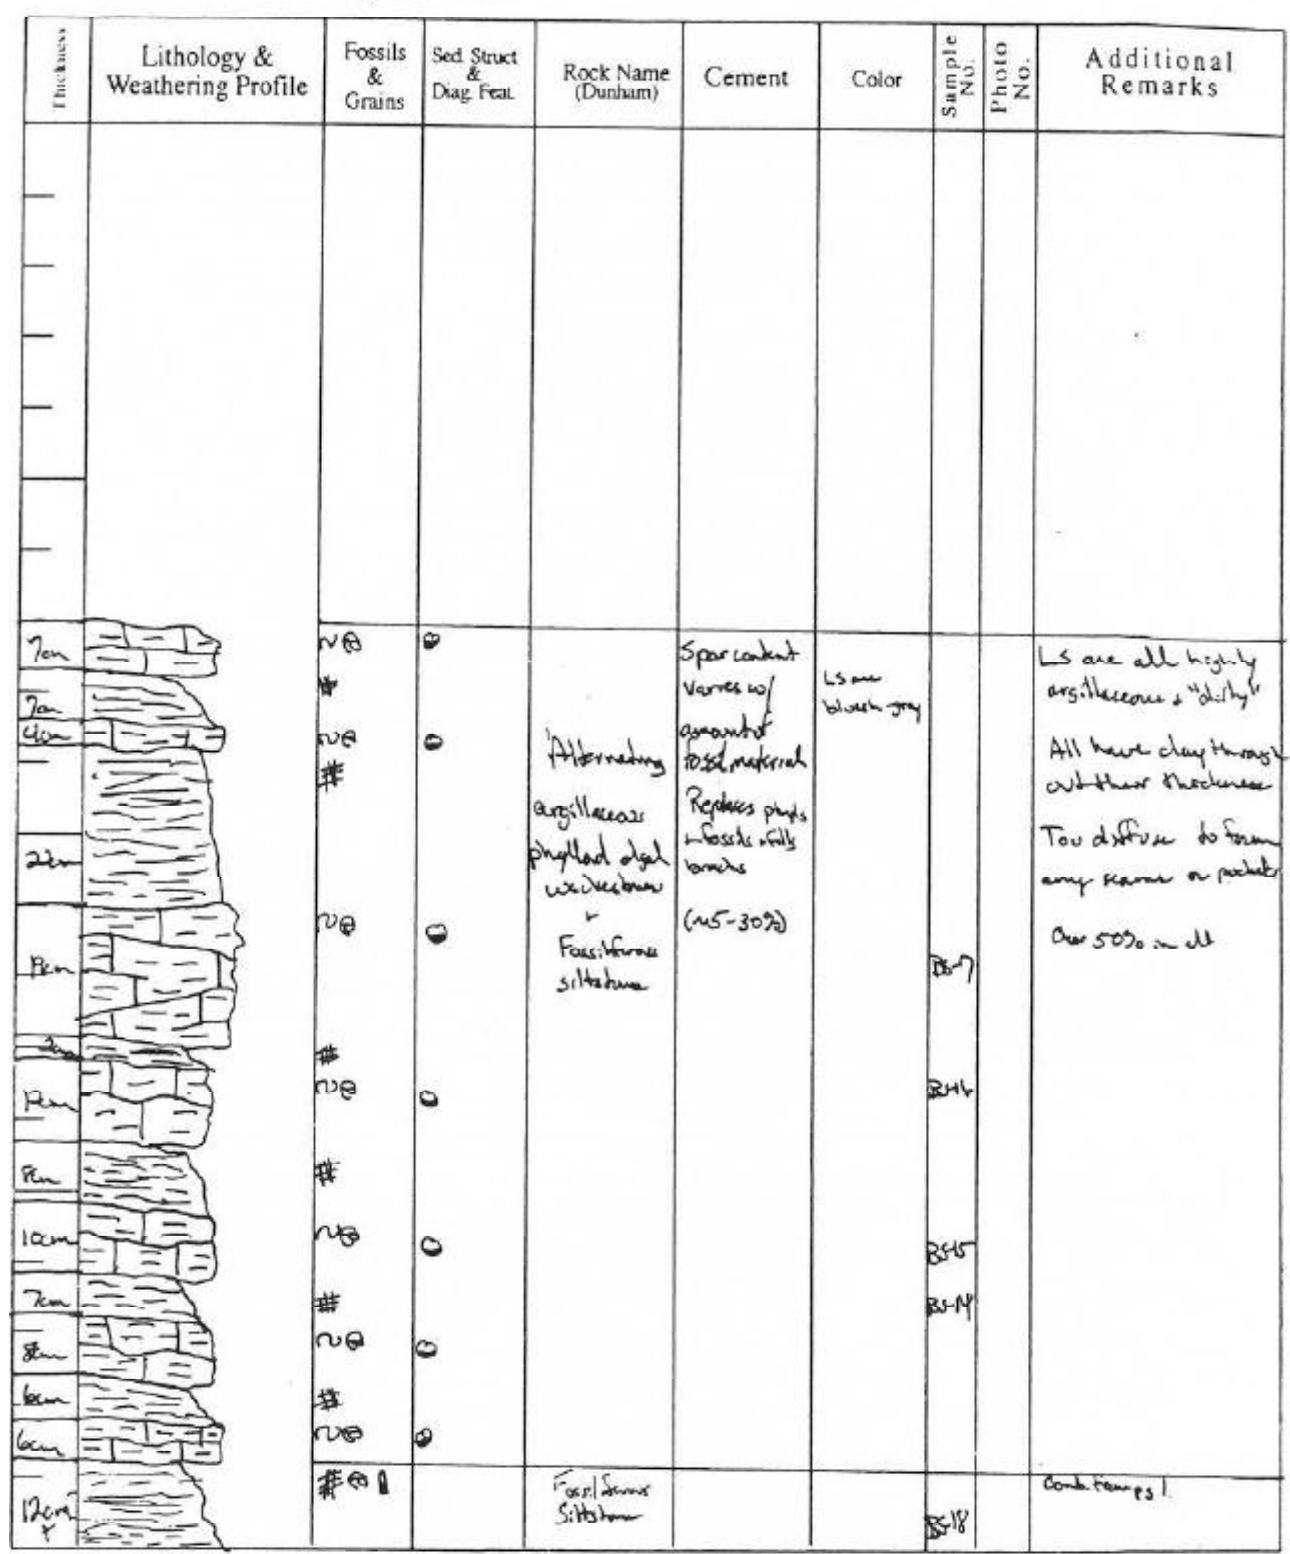 Thickness
Lithology &
Weathering Profile
Fossils
&
Grains
Sed. Struct
&
Diag. Feat.
Rock Name
(Dunham)
Cement
Color
Sample
No.
Photo
No.
Additional
Remarks
7cm
7cm
4cm
22cm
2cm
8cm
10cm
7cm
8cm
6cm
6cm
12cm
+
Alternating
argillaceous
phylloid algal
wackestone
+
Fossiliferous
siltstone
Fossiliferous
Siltstone
Spar content
varies w/
amount of
fossil material
Replaces phylls
+ fossils + fills
(~5-30%)
LS are
bluish-gray
BS-7
BS-15
BS-14
BS-18
LS are all highly
argillaceous + "dirty"
All have clay through
out their thickness
Too diffuse to form
any seams or pockets
Over 50% in all